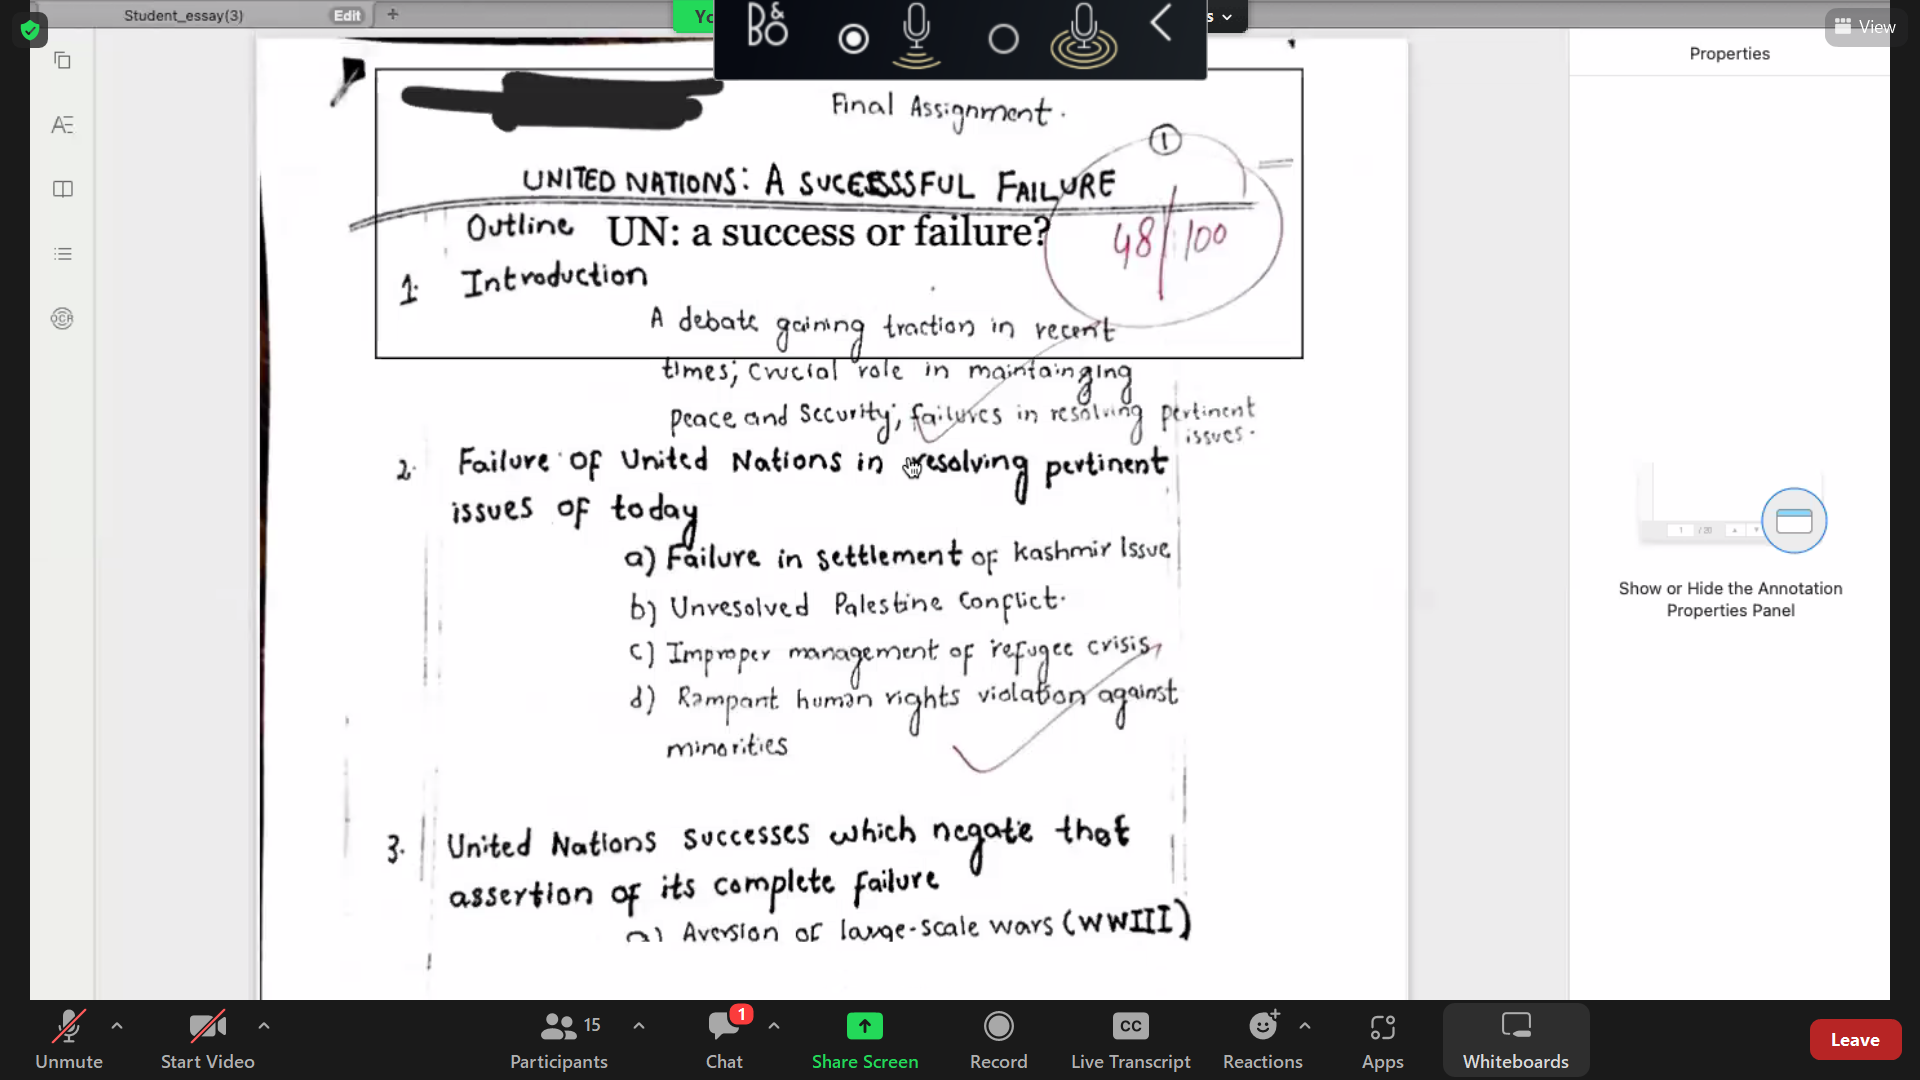 Student_essay(3)
Edit
+
B&O
View
Properties
Final Assignment.
1
UNITED NATIONS: A SUCESSSFUL FAILURE
Outline UN: a success or failure?
48/100
1. Introduction
A debate gaining traction in recent
times; crucial role in maintainging
peace and security; failures in resolving pertinent
issues.
2. Failure of United Nations in resolving pertinent
issues of today
a) Failure in settlement of Kashmir Issue
b) Unresolved Palestine Conflict.
c) Improper management of refugee crisis
d) Rampant human rights violation against
minorities
3. United Nations successes which negate that
assertion of its complete failure
a) Aversion of large-scale wars (WWIII)
OCR
Show or Hide the Annotation
Properties Panel
Unmute
Start Video
15
Participants
1
Chat
Share Screen
Record
CC
Live Transcript
Reactions
Apps
Whiteboards
Leave